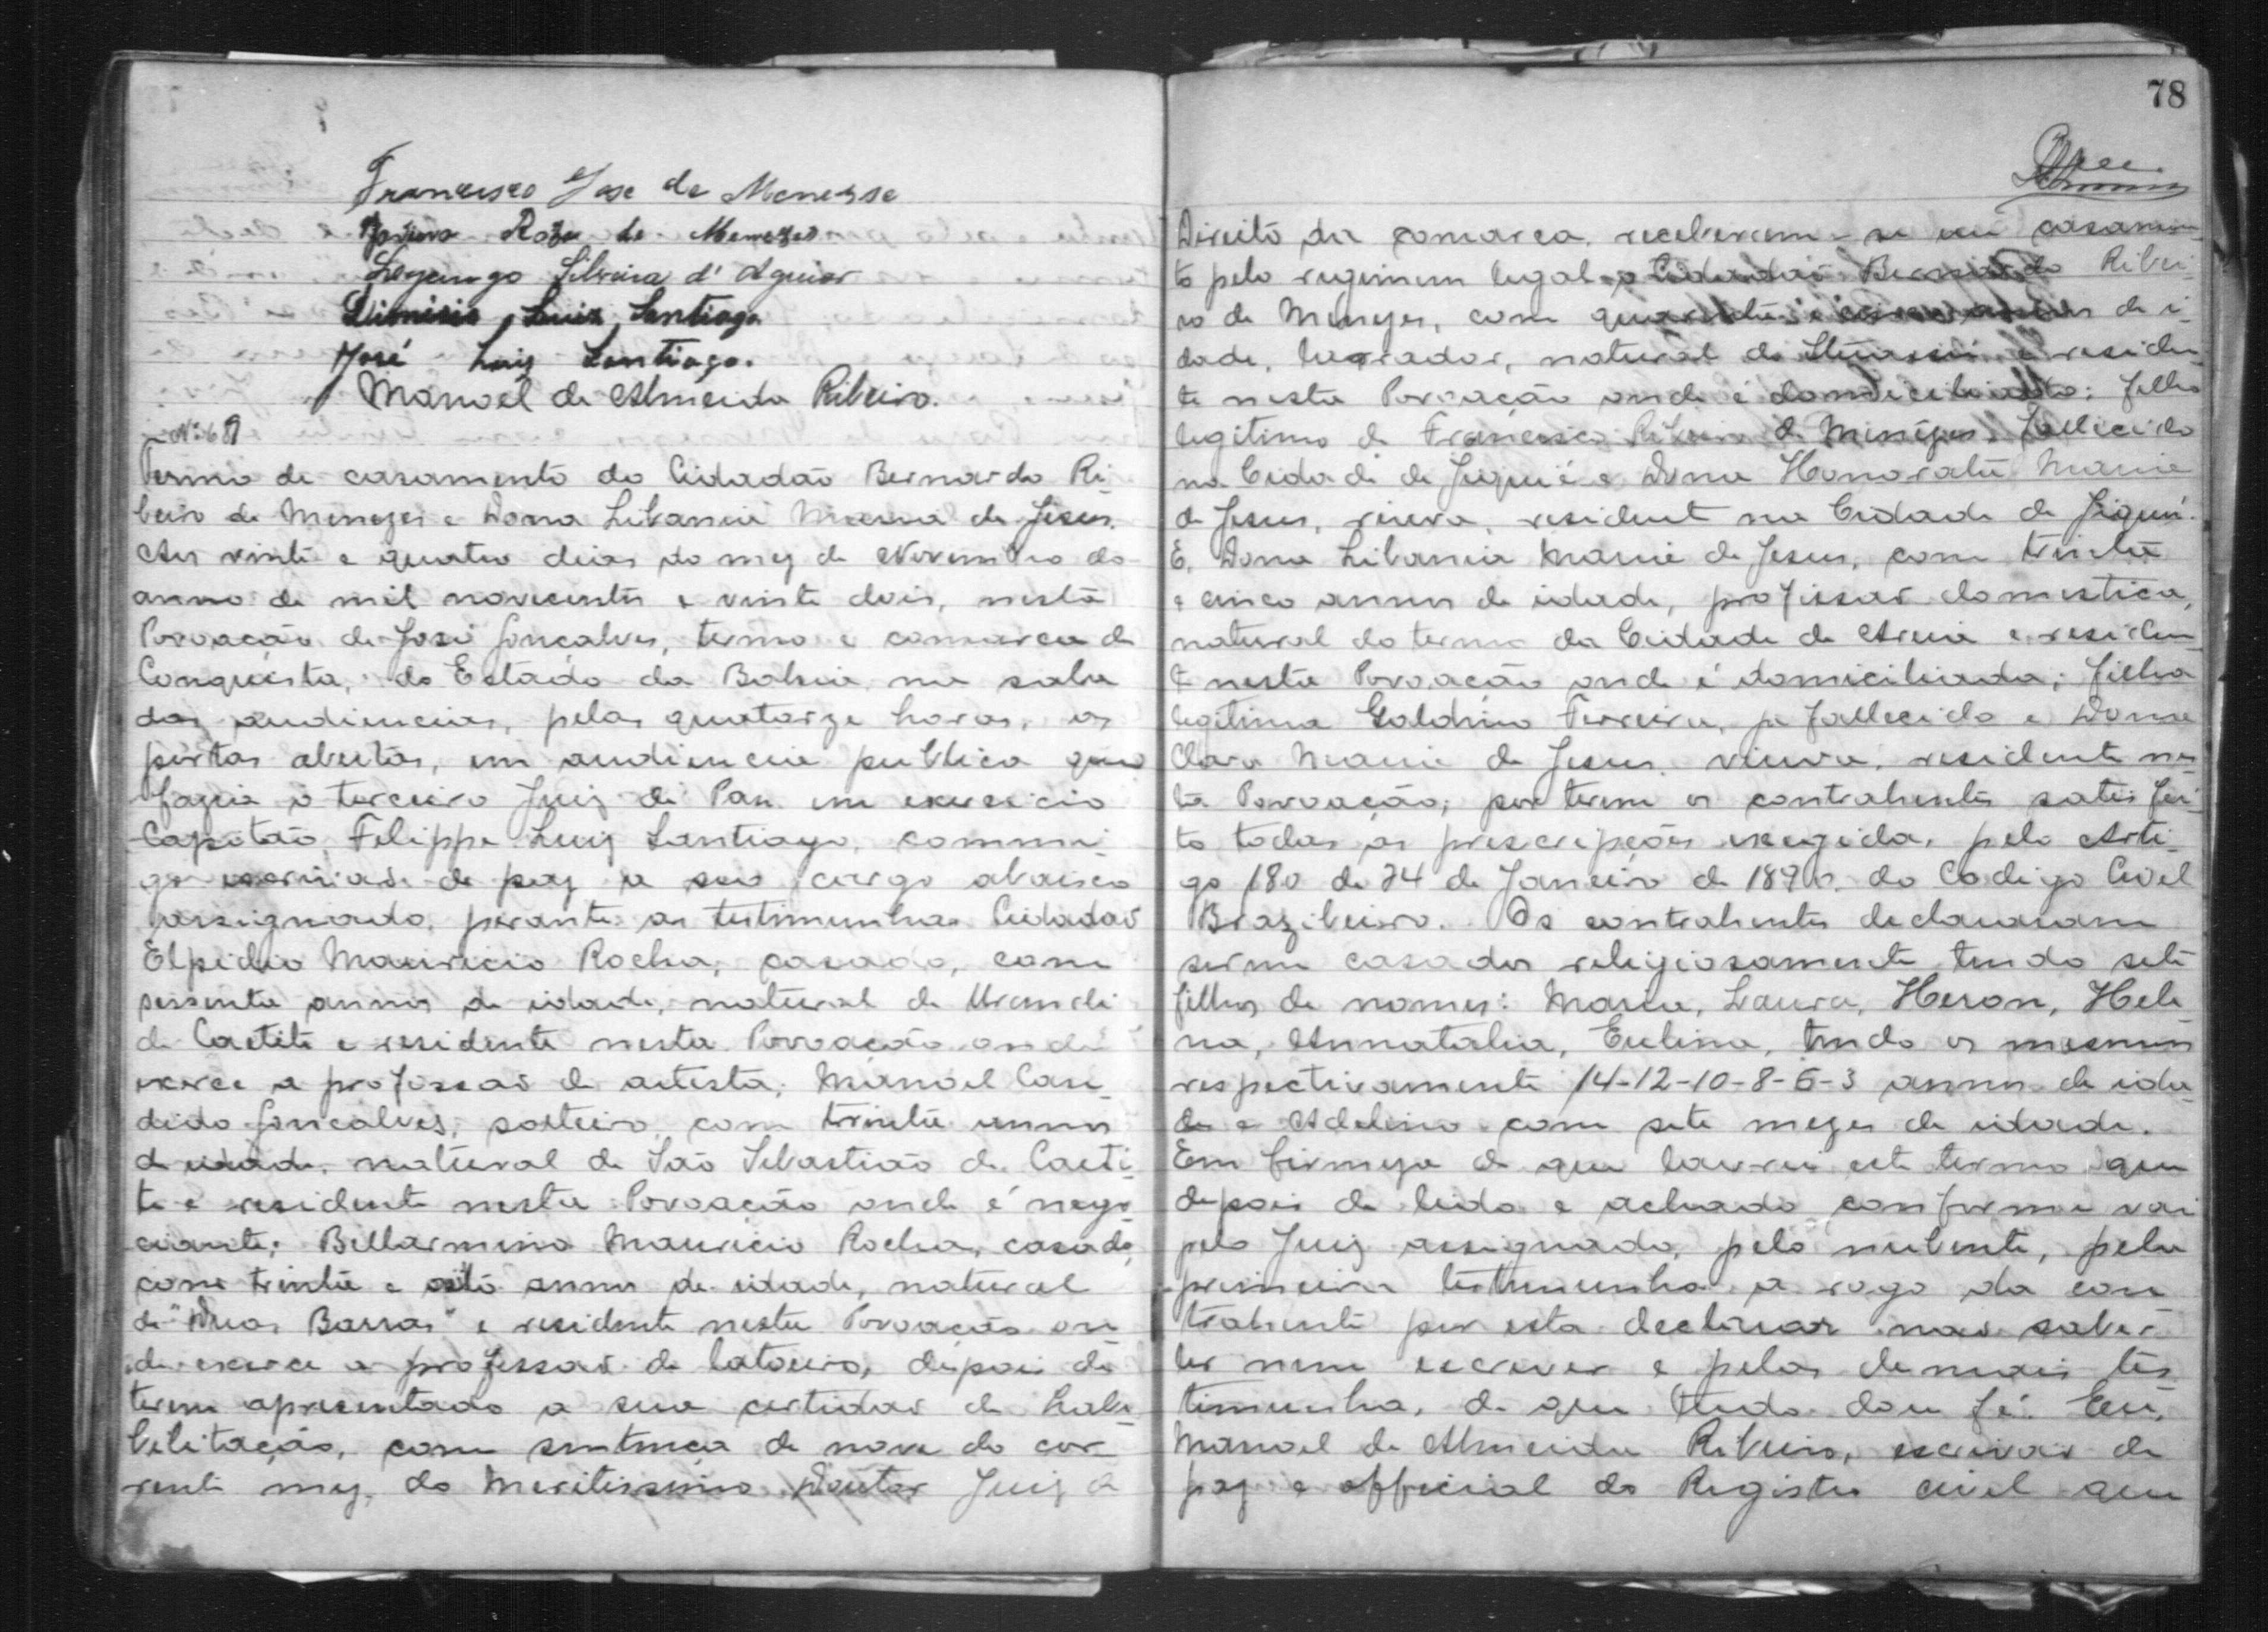 Francisco Jose de Menezse
Roza de Menezes
Silveira d'Aguiar
Dionisio Luiz Santiago
José Luiz Santiago.
Manoel de Almeida Ribeiro.
Nº 67
Termo de casamento do Cidadão Bernardo Ri-
beiro de Menezes e Dona Libania Maria de Jesus.
Aos vinte e quatro dias do mez de Novembro do
anno de mil novecentos e vinte dois, nesta
Povoação de José Gonçalves, termo e comarca de
Conquista, do Estado da Bahia, na sala
das audiencias, pelas quatorze horas, as
portas abertas, em audiencia publica que
fazia o terceiro Juiz de Paz em exercicio
Capitão Felippe Luiz Santiago, commi-
go escrivão de paz a seu cargo abaixo
assignado, perante as testimunhas Cidadão
Elpidio Mauricio Rocha, casado, com
sessenta annos de idade, natural de
de Caetité e residente nesta Povoação onde
exerce a profissão de artista; Manoel Can-
dido Gonçalves, solteiro, com trinta annos
de idade, natural de São Sebastião de Caeti-
te e residente nesta Povoação onde é nego-
ciante; Bellarmino Mauricio Rocha, casado,
com trinta e oito annos de idade, natural
de "Duas Barras" e residente nesta Povoação on-
de exerce a profissão de latoeiro, depois de
terem apresentado a sua certidão de habi-
belitação, com sentença de nove do cor-
rente mez, do Meritissimo Doutor Juiz de
78
Direito da comarca, receberam-se em casamen-
to pelo regimem legal o Cidadão Bernardo Ribei-
ro de Menezes, com quarenta e cinco annos de i-
dade, lavrador, natural de e residen-
te nesta Povoação onde é domiciliado: filho
legitimo de Francisco Ribeiro de Menezes, fallecido
na Cidade de Jiquié e Dona Honorata Maria
de Jesus, viuva, residente na Cidade de Jiquié.
E, Dona Libania Maria de Jesus, com trinta
e cinco annos de idade, profissão domestica,
natural do termo da Cidade de Areia e residen-
te nesta Povoação onde é domiciliada; filha
legitima Galdino Ferreira, ja fallecido e Dona
Clara Maria de Jesus, viuva, residente nes-
ta Povoação; por terem os contrahentes satisfei-
to todas as prescripções exegida, pelo Arti-
go 180 de 24 de Janeiro de 1890. do Codigo Civel
Brazileiro. Os contrahentes declararam
serem casados religiosamente tendo sete
filhos de nomes: Maria, Laura, Heron, Hele-
na, Annatalia, Eulina, tendo os mesmos
respectivamente 14-12-10-8-6-3 annos de ida-
de e Adelino com sete mezes de idade.
Em firmeza de que lavrei este termo que
depois de lido e achado conforme vai
pelo Juiz assignado, pelo nubente, pela
primeira testimunha a rogo da con-
trahente por esta declarar não saber
ler nem escrever e pelas demais tes-
timunha, de que tudo dou fé. Eu,
Manoel de Almeida Ribeiro, escrivão de
paz e official do Registro civel que